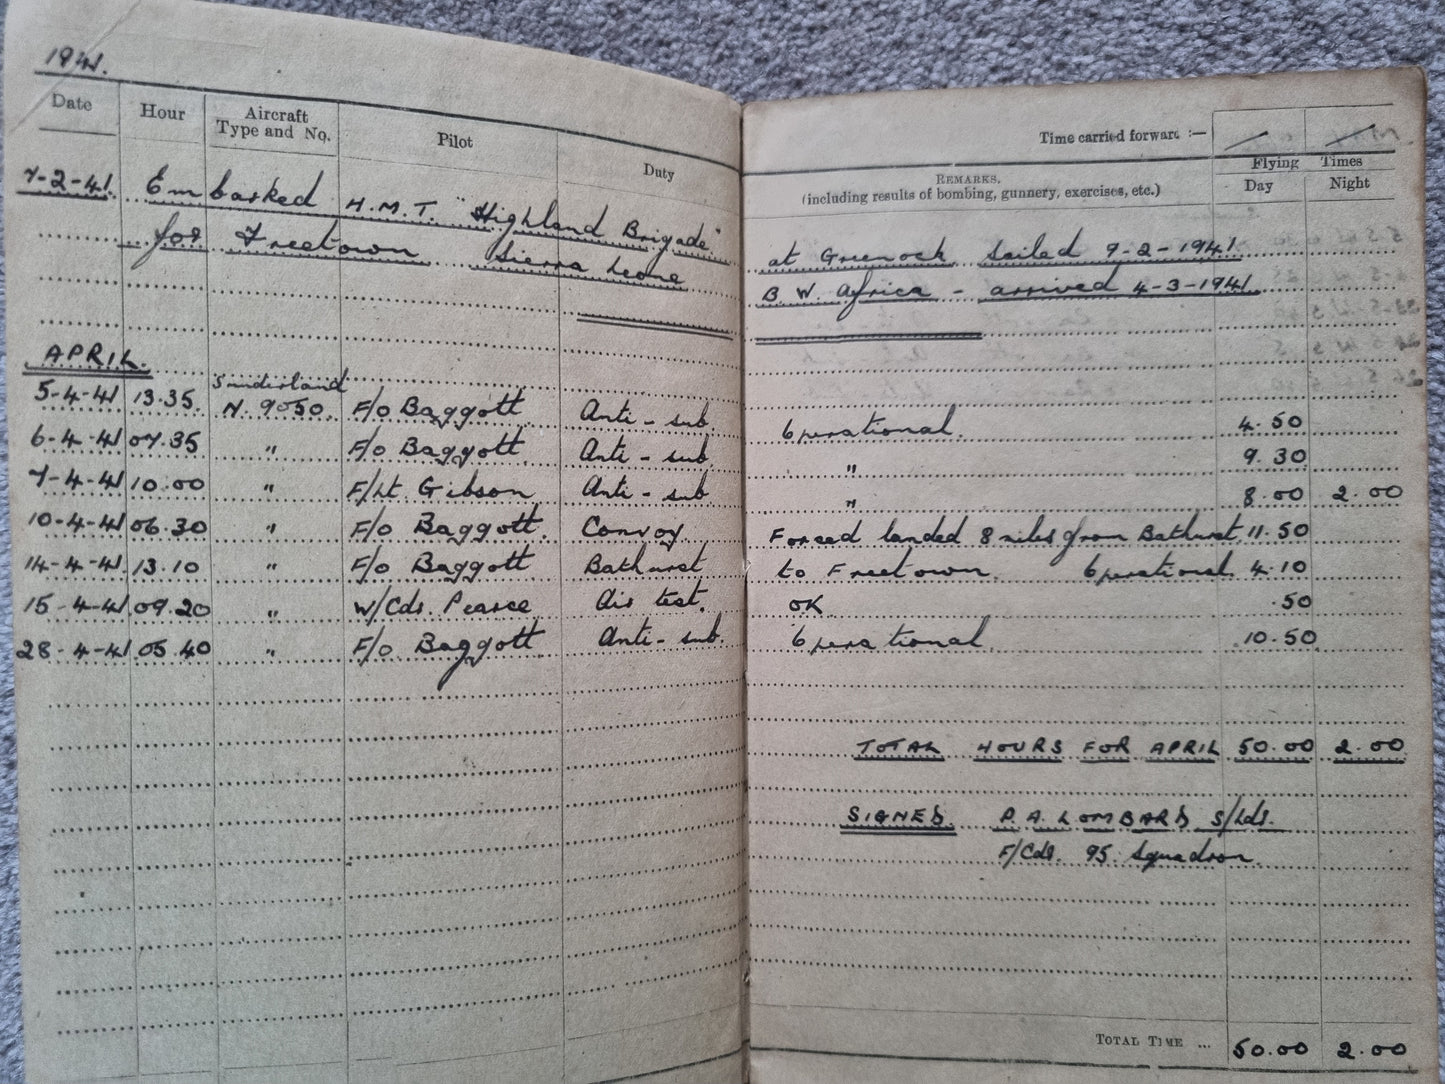 1941.
Date Hour Aircraft Type and No. Pilot Duty
Time carried forward :—
REMARKS. (including results of bombing, gunnery, exercises, etc.) Flying Times Day Night
7-2-41. Embarked H.M.T. "Highland Brigade" at Greenock sailed 9-2-1941
for Freetown Sierra Leone B. W. Africa - arrived 4-3-1941.
APRIL.
Sunderland
5-4-41 13.35. N.9050. F/o Baggott Anti-sub. Operational. 4.50
6-4-41 07.35 " F/o Baggott Anti-sub. " 9.30
7-4-41 10.00 " F/Lt. Gibson Anti-sub " 8.00 2.00
10-4-41 06.30 " F/o Baggott. Convoy. Forced landed 8 miles from Bathurst. 11.50
14-4-41. 13.10 " F/o Baggott Bathurst to Freetown. Operational. 4.10
15-4-41. 09.20 " W/Cdr. Pearce Air test. OK .50
28-4-41. 05.40 " F/o Baggott Anti-sub. Operational. 10.50
TOTAL HOURS FOR APRIL 50.00 2.00
SIGNED. P. A. LOMBARD S/Ldr.
F/Cdr. 95 Squadron.
TOTAL TIME ... 50.00 2.00